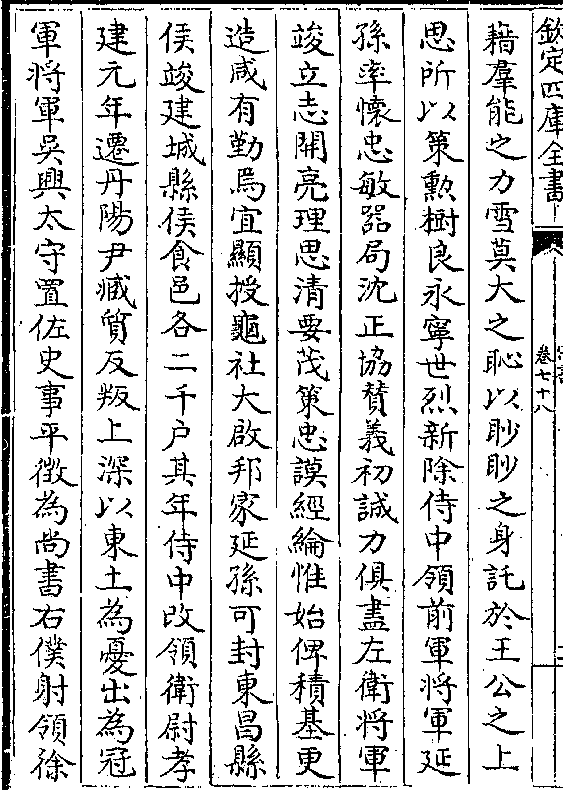 欽定四庫全書
卷七十八
藉羣能之力雪莫大之恥以眇眇之身託於王公之上
思所以策勲樹良永寧世烈新除侍中領前軍將軍延
孫率懷忠敏器局沈正協賛義初誠力俱盡左衛將軍
竣立志開亮理思清要茂策忠謨經綸惟始俾積基更
造咸有勤焉宜顯授龜社大啟邦家延孫可封東昌縣
侯竣建城縣侯食邑各二千户其年侍中改領衛尉孝
建元年遷丹陽尹臧質反叛上深以東土為憂出為冠
軍將軍吳興太守置佐史事平徵為尚書右僕射領徐